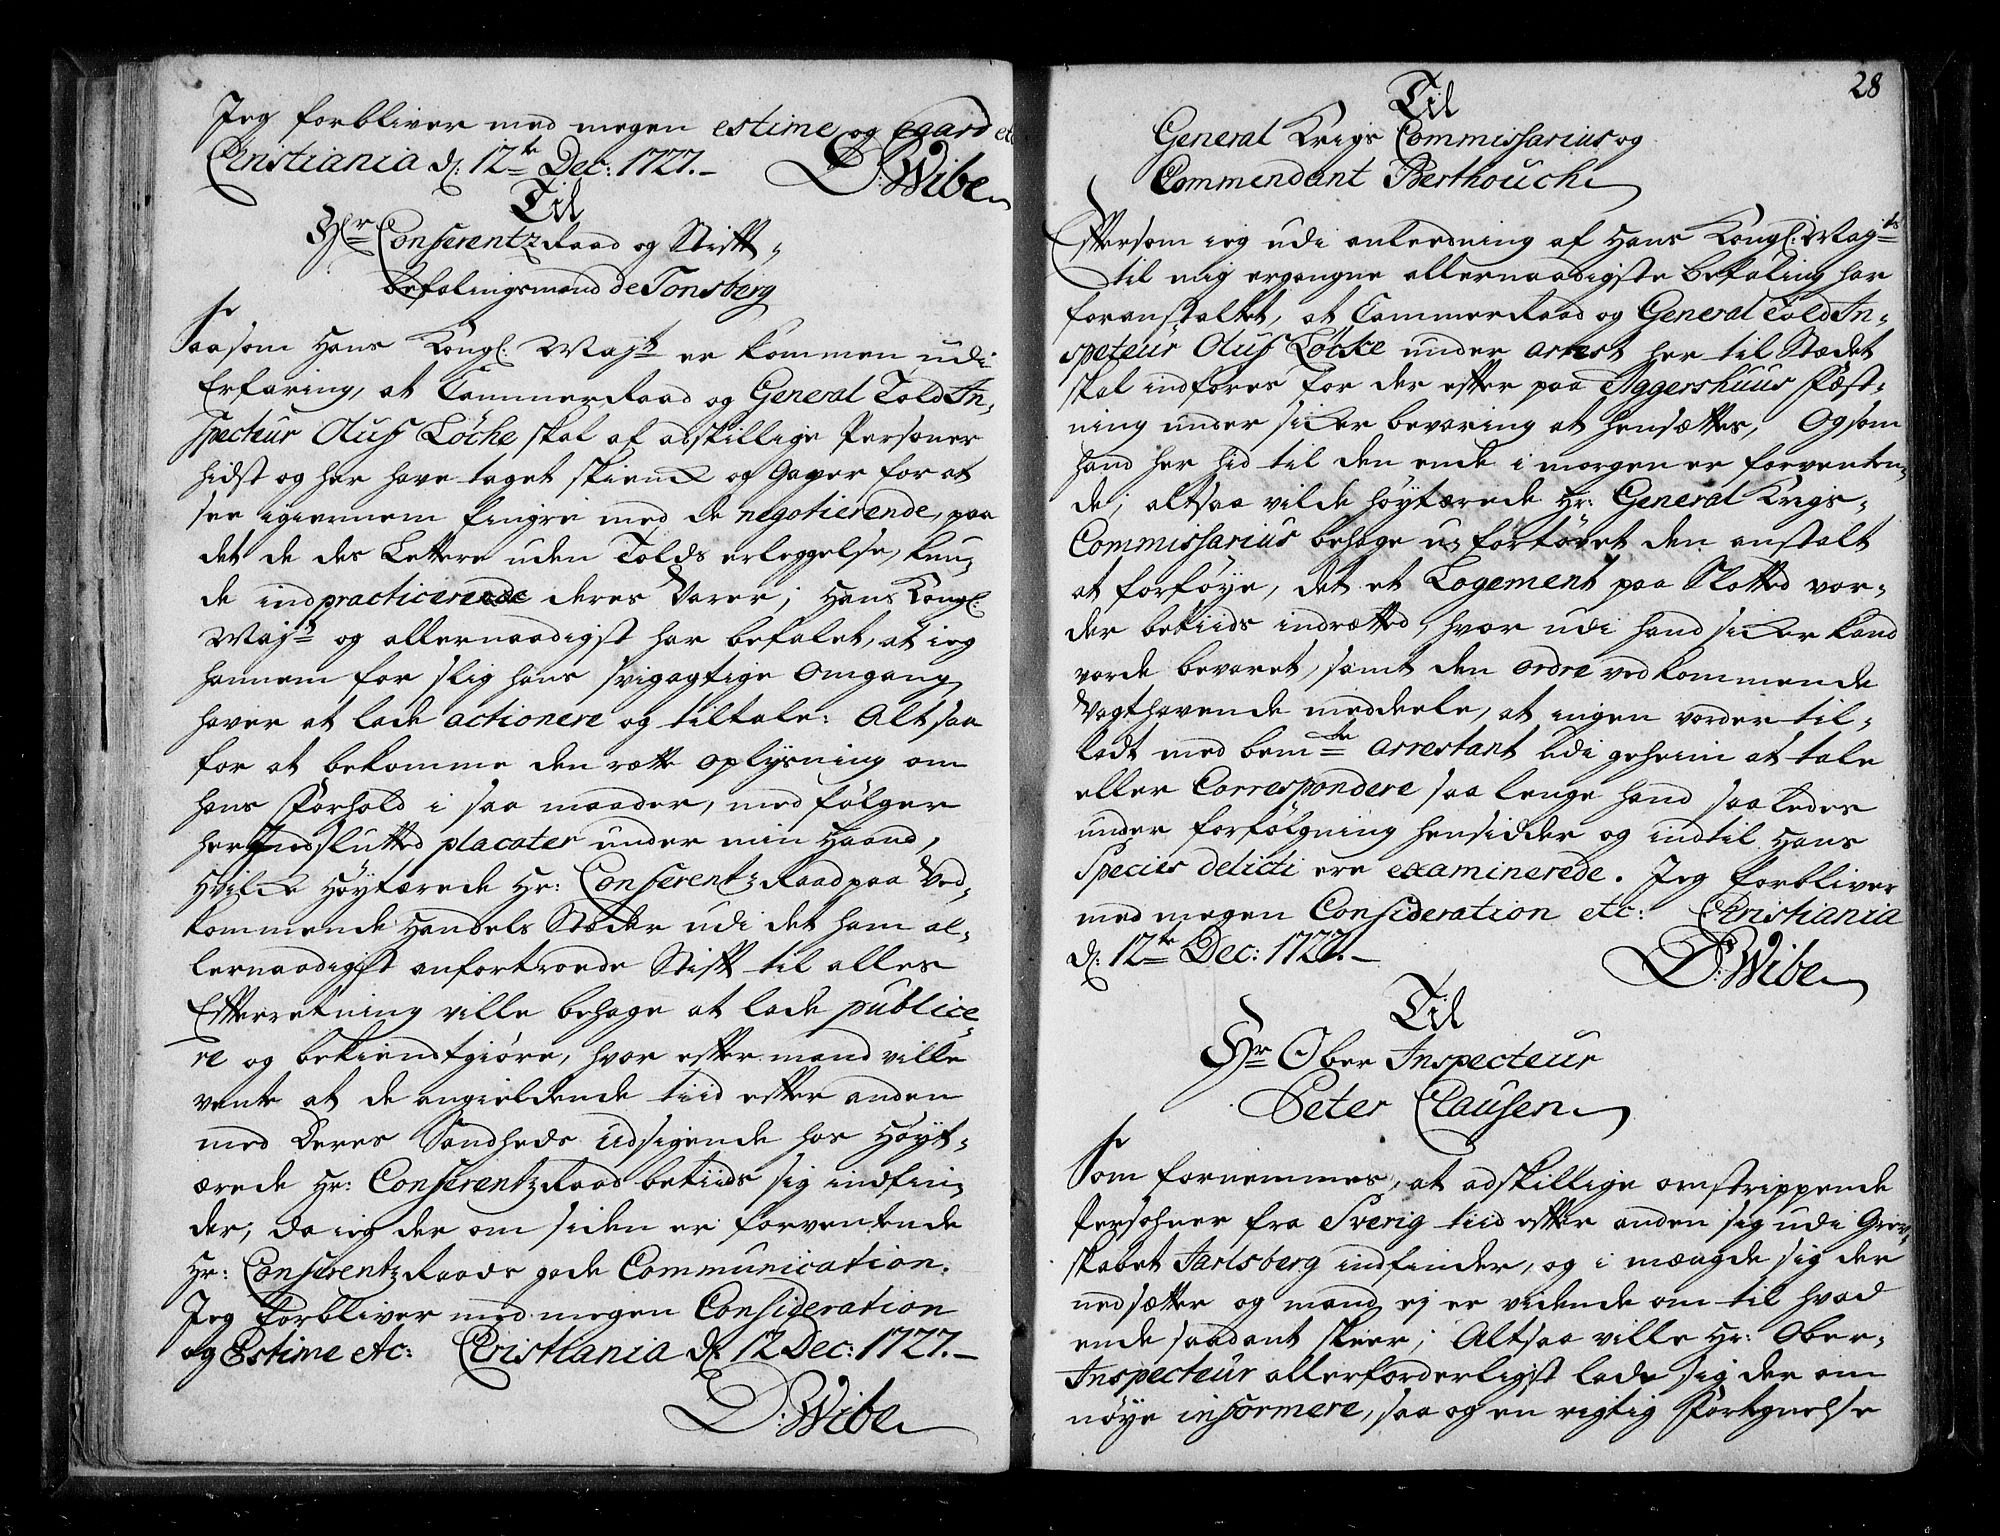 Jeg forbliver med megen estime og egard etc
Christiania d: 12te Dec: 1727.
D: Wibe
Til
Hr Conferentz Raad og Stifft-
befalingsmand de Tonsberg
Saasom Hans Kongl: Mayts er kommen udi
Erfaring, at Cammer Raad og General Told In-
specteur Oluf Löche skal af adskillige Personer
hidst og her have taget skienck og Gaver for at
see igiennem fingre med de negotierende, paa
det de des Lettere uden Tolds erleggelse, kun-
de indpracticerede deres Varer; Hans Kongl:
Mayts og allernaadigst har befalet, at ieg
hannem for slig hans svigagtige Omgang
haver at lade actionere og tiltale: Altsaa
for at bekomme den rætte oplysning om
hans Forhold i saa maader, med følger
her Indslutted placater under min Haand,
Hvilcke Høytærede Hr: Conferentz Raad paa Ved-
kommende Handels Stæder udi det ham al-
lernaadigst anfortroede Stift til alles
Efterretning ville behage at lade publice-
re og bekiendtgiøre, hvor efter mand ville
vente at de angieldende tiid efter anden
med Deres Sandheds Udsigende hos Høyt-
ærede Hr: Conferentz Raad betiids sig indfin-
der, da ieg der om siden er forventende
Hr: Conferentz Raads gode Communication.
Jeg forbliver med megen Consideration
og Estime etc: Christiania d: 12 Dec: 1727.
D: Wibe
28
Til
General Krigs Commissarius og
Commendant Berthouch
Eftersom ieg udi anledning af Hans Kongl: Mayts
til mig ergangne allernaadigste befaling har
foranstaltet, at Cammer Raad og General Told In-
specteur Oluf Löcke under arrest her til Stædet
skal indføres for der efter paa Aggershuus Fæst-
ning under sicker bevaring at hensættes, Og som
hand her hid til den ende i morgen er forventen-
de; altsaa vilde høytærede Hr: General Krigs-
Commissarius behage ufortøvet den anstalt
at forføye, det et Logement paa Slotted vor-
der betiids indrætted, hvor udi hand sicker kand
vorde bevaret, samt den ordre vedkommende
Vagthavende meddeele, at ingen vorder til-
ladt med bemte Arrestant udi geheim at tale
eller Correspondere saa lenge hand saaledes
under forfølgning hensidder og indtil Hans
Species delicti ere examinerede. Jeg forbliver
med megen Consideration etc: Christiania
d: 12te Dec: 1727.
D: Wibe
Til
Hr Ober Inspecteur
Peter Clausen
Som fornemmes, at adskillige omstrippende
Persohner fra Sverig tiid efter anden sig udi Grev-
skabet Jarlsberg indfinder, og i mængde sig der
nedsætter og mand ej er vidende om til hvad
ende saadant skeer; Altsaa ville Hr: Ober-
Inspecteur allerforderligst lade sig der om
nøye informere, saa og en rigtig Fortegnelse